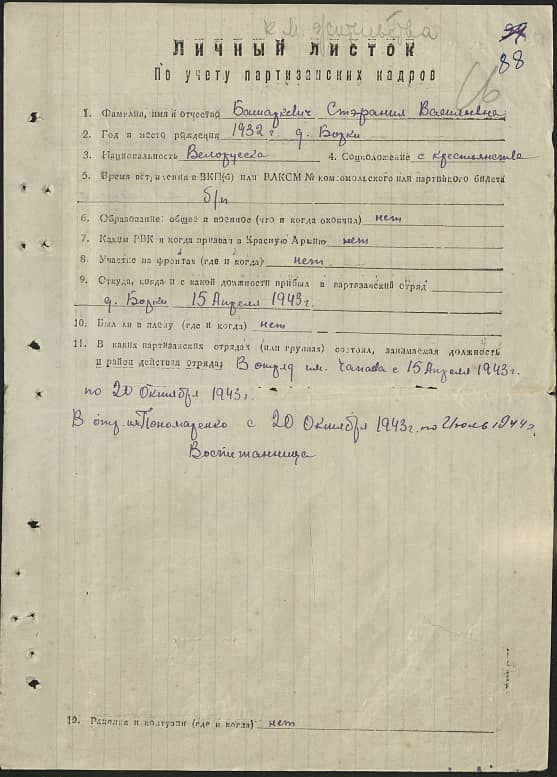 к М. Житкевова
88
Личный листок
По учету партизанских кадров
1. Фамилия, имя и отчество Башаркевич Стэфания Васильевна
2. Год и место рождения 1932 г. д. Борки
3. Национальность Велорусска 4. Соцположение с крестьянства
5. Время вступления в ВКП(б) или ВЛКСМ № комсомольского или партийного билета
б/п
6. Образование: общее и военное (что и когда окончил) нет
7. Каким РВК и когда призван в Красную Армию нет
8. Участие на фронтах (где и когда) нет.
9. Откуда, когда и с какой должности прибыл в партизанский отряд
д. Борки 15 Апреля 1943 г.
10. Был ли в плену (где и когда) нет
11. В каких партизанских отрядах (или группах) состоял, занимаемая должность
и район действия отряда; В отряд им. Чапаева с 15 Апреля 1943 г.
по 20 Октября 1943 г.
В отр. им Пономаренко с 20 Октября 1943 г. по Июль 1944 г.
Воспитанница
12. Ранения и контузии (где и когда) нет